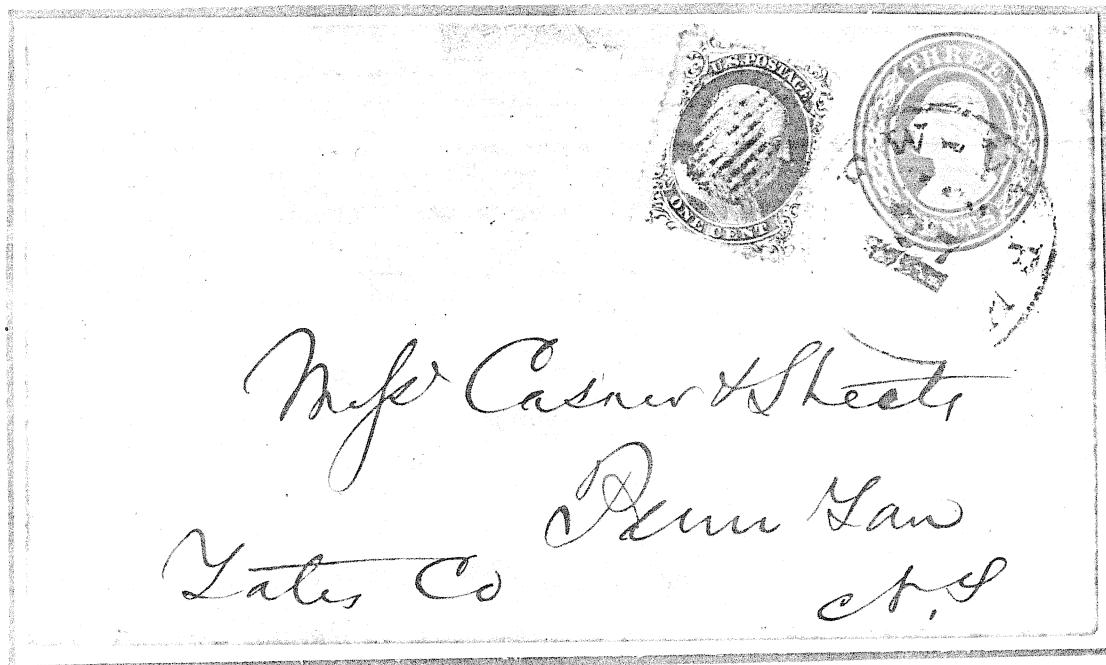 U.S. POSTAGE
ONE CENT
THREE
CENTS
Messrs Casner & Sheats
Penn Yan
Yates Co
N.Y